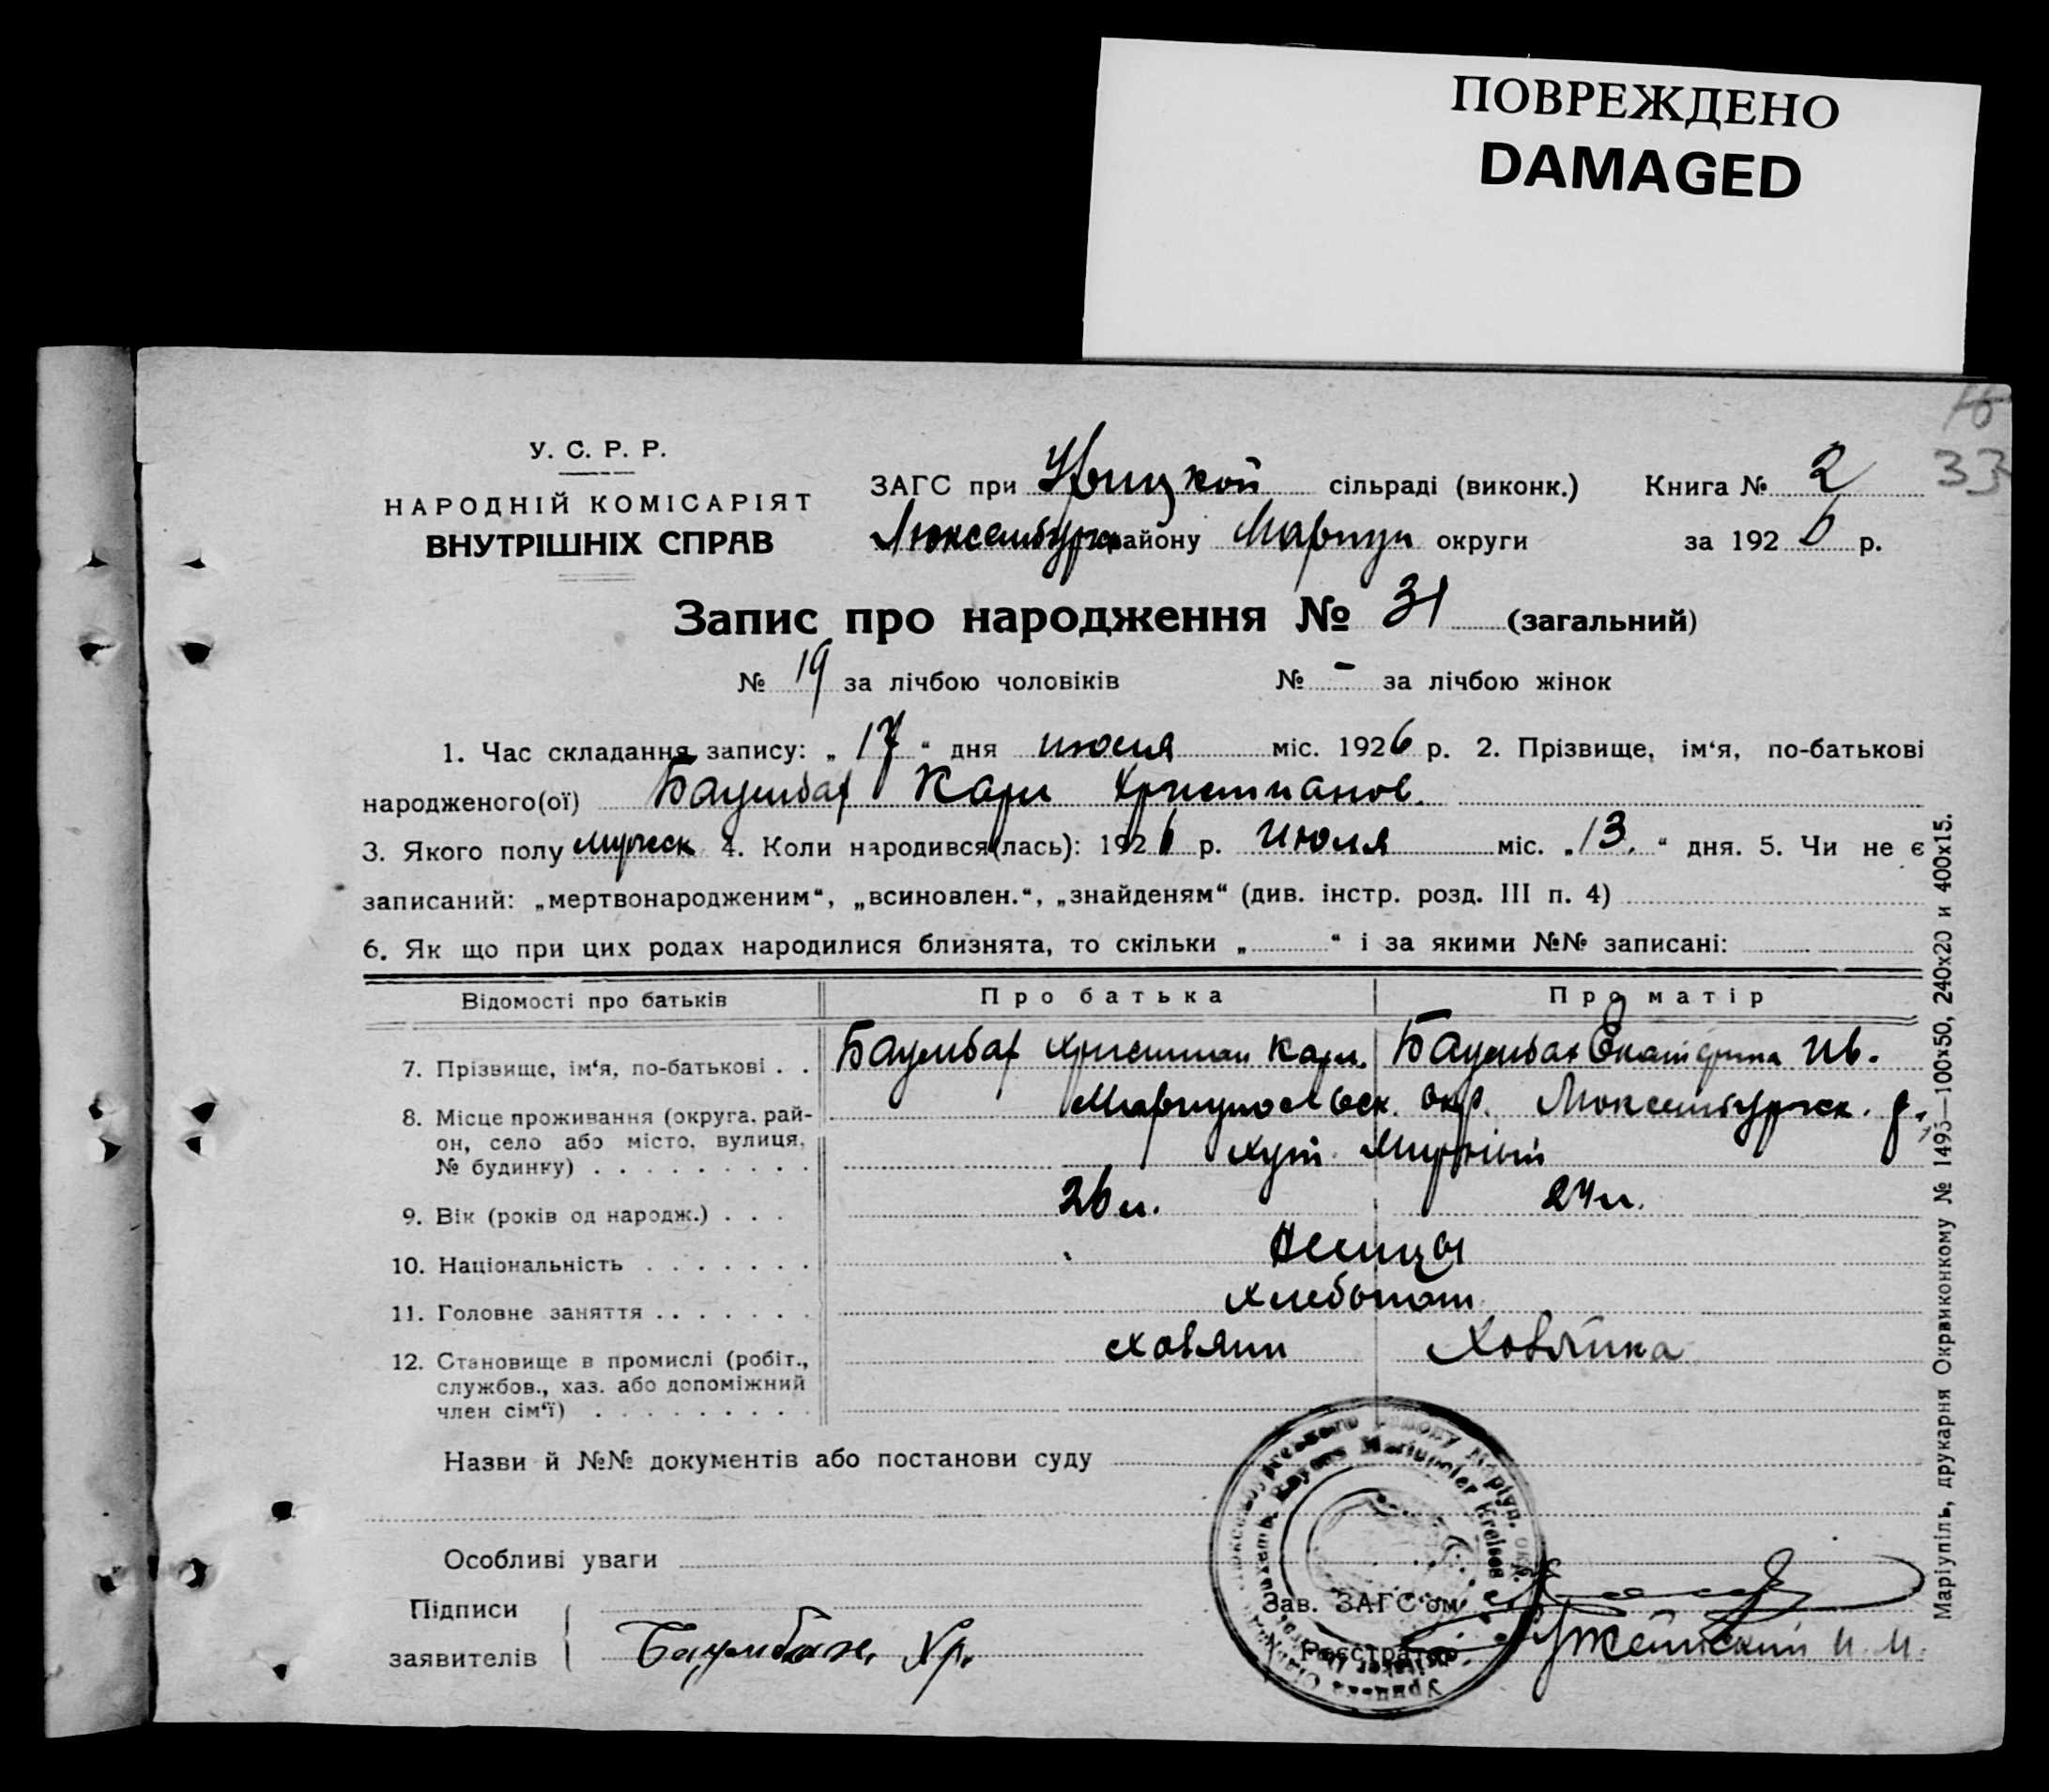 ПОВРЕЖДЕНО
DAMAGED
33
У. С. Р. Р.
НАРОДНІЙ КОМІСАРІЯТ
ВНУТРІШНІХ СПРАВ
ЗАГС при Урицкой сільраді (виконк.) Книга № 2
Люксембургск району Мариуп округи за 1926 р.
Запис про народження № 31 (загальний)
№ 19 за лічбою чоловіків № - за лічбою жінок
1. Час складання запису: „ 17 “ дня июля міс. 1926 р. 2. Прізвище, ім‘я, по-батькові
народженого(ої) Баумбах Карл Христианов.
3. Якого полу мужеск 4. Коли народився(лась): 1926 р. Июля міс. „13.“ дня. 5. Чи не є
записаний: „мертвонародженим“, „всиновлен.“, „знайденям“ (див. інстр. розд. III п. 4)
6. Як що при цих родах народилися близнята, то скільки „ “ і за якими №№ записані:
Відомості про батьків Про батька Про матір
7. Прізвище, ім‘я, по-батькові . . Баумбах Христиан Карл. Баумбах Екатерина Ив.
8. Місце проживання (округа, рай- Мариупольск. окр. Люксембургск. р.,
он, село або місто, вулиця, хут. Мирный
№ будинку) . . . . . . . . .
9. Вік (років од народж.) . . . 26 л. 24 л.
10. Національність . . . . . . . Немцы
11. Головне заняття . . . . . . . Хлебопаш
12. Становище в промислі (робіт., Хозяин Хозяйка
службов., хаз. або допоміжний
член сім‘ї) . . . . . . . . .
Назви й №№ документів або постанови суду
Особливі уваги
Підписи
заявителів Баумбах Хр.
Зав. ЗАГС‘ом
Реєстратор
Маріупіль, друкарня Окрвиконкому № 1495—100х50, 240х20 и 400х15.